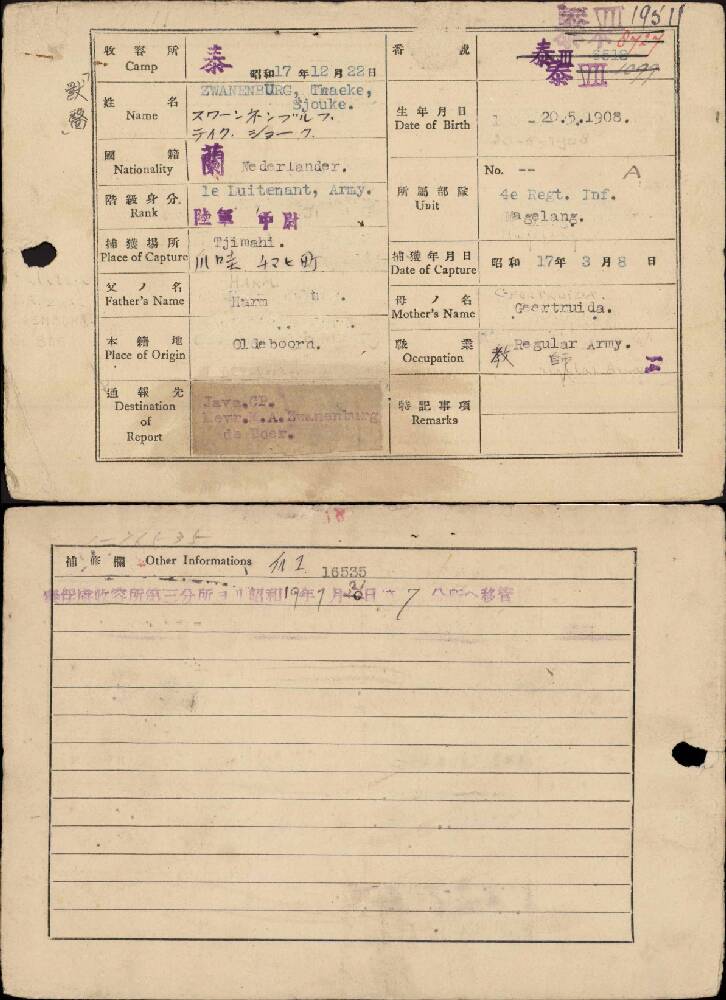 泰 VII 19511
收容所
Camp
泰
昭和17年12月22日
番號
泰 III 8727
泰 VII 1099
獸醫
姓名
Name
ZWANENBURG, Tmaeke,
Sjouke.
スワーンネンブルフ
テイク. ショーク.
生年月日
Date of Birth
20.5.1908.
國籍
Nationality
蘭 Nederlander.
No. -- A
階級身分
Rank
1e Luitenant, Army.
陸軍 中尉
所屬部隊
Unit
4e Regt. Inf.
Magelang.
捕獲場所
Place of Capture
Tjimahi.
爪哇 チマヒ町
捕獲年月日
Date of Capture
昭和 17年 3月 8日
父ノ名
Father's Name
Harm
母ノ名
Mother's Name
Geertruida.
本籍地
Place of Origin
Oldeboorn.
職業
Occupation
Regular Army.
教師
通報先
Destination
of
Report
Java.CP.
Mevr.M.A.Zwanenburg
de Boer.
特記事項
Remarks
18
補修欄 Other Informations
16535
泰俘虜收容所第三分所ヨリ昭和19年7月31日
ヘ移管